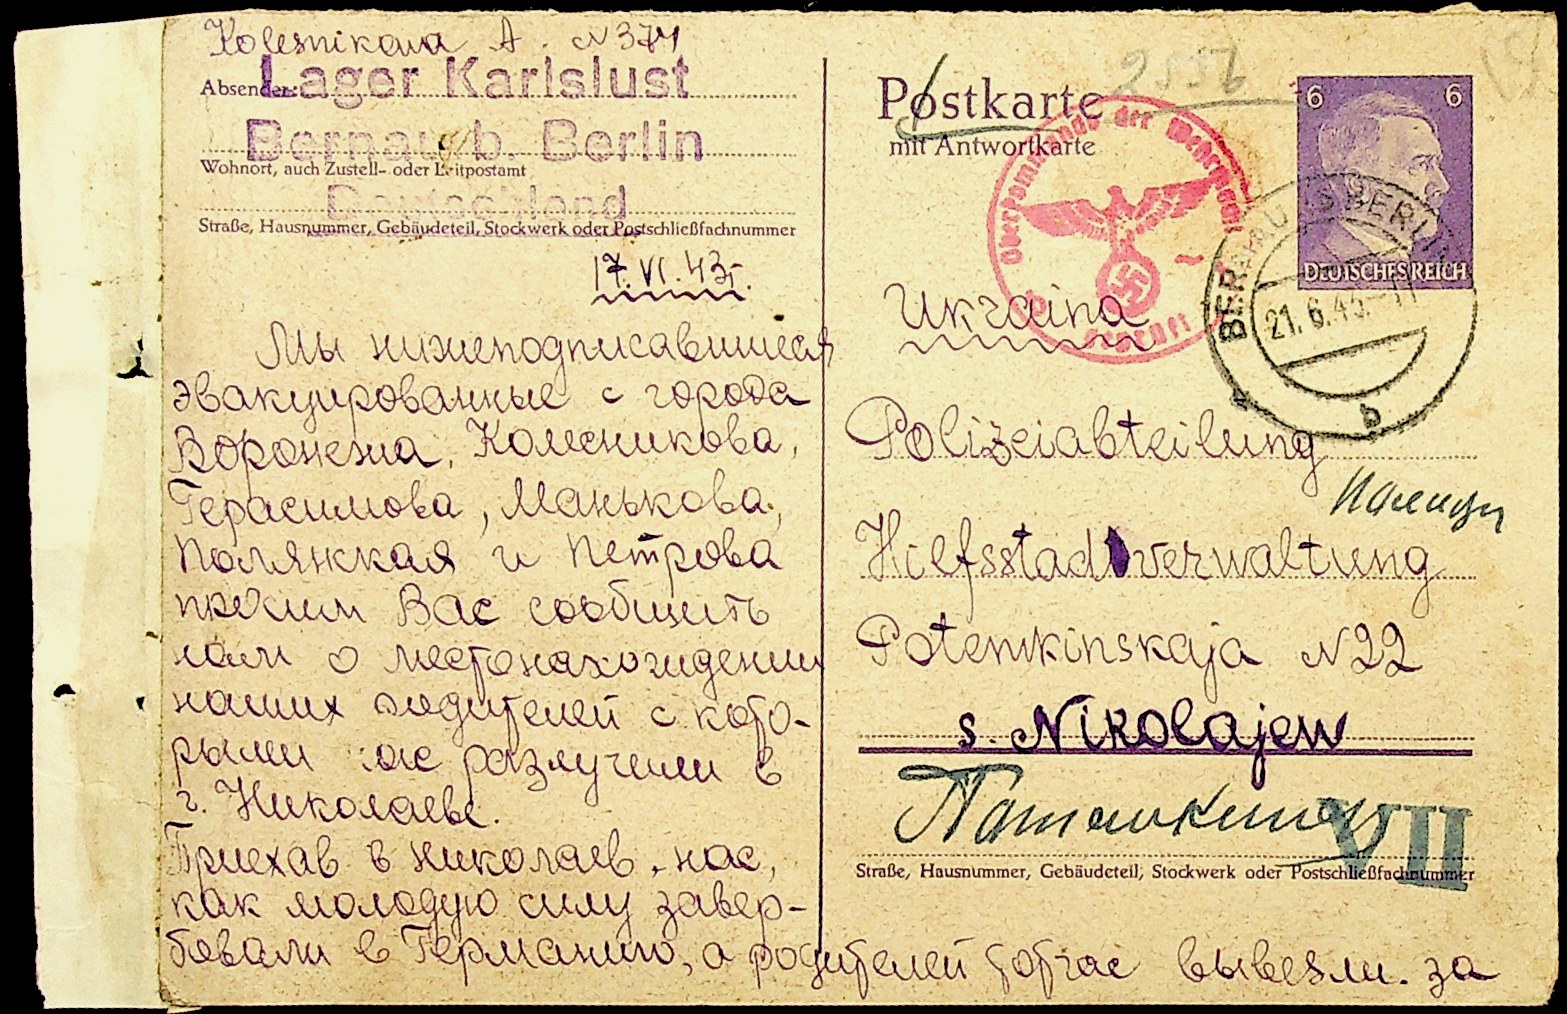 Kolesnikowa A. N 374
Absender:
Lager Karlslust
Bernau b. Berlin
Wohnort, auch Zustell- oder Leitpostamt
Deutschland
Straße, Hausnummer, Gebäudeteil, Stockwerk oder Postschließfachnummer
17.VI.43г.
Мы нижеподписавшиеся
эвакуированные с города
Воронежа, Колесникова,
Герасимова, Манькова,
Полянская и Петрова
просим Вас сообщить
нам о местонахождении
наших родителей с кото-
рыми нас разлучили в
г. Николаеве.
Приехав в Николаев, нас,
как молодую силу завер-
бовали в Германию, а родителей тотчас вывезли. за
Postkarte
mit Antwortkarte
2556
6 6
DEUTSCHES REICH
Oberkommando der Wehrmacht
BERNAU B BERLIN
21.6.43.
b
Ukraina
Polizeiabteilung
Hilfsstadtverwaltung
Potemkinskaja N22
s. Nikolajew
VII
Straße, Hausnummer, Gebäudeteil, Stockwerk oder Postschließfachnummer